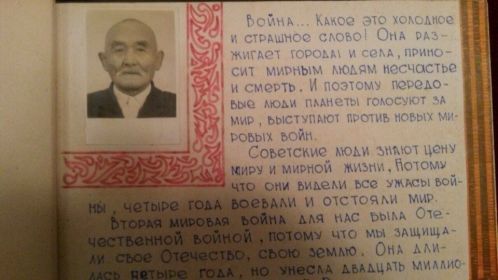 Война... Какое это холодное
и страшное слово! Она раз-
жигает города и села, прино-
сит мирным людям несчастье
и смерть. И поэтому передо-
вые люди планеты голосуют за
мир, выступают против новых ми-
ровых войн.
Советские люди знают цену
миру и мирной жизни, Потому
что они видели все ужасы вой-
ны, четыре года воевали и отстояли мир.
Вторая мировая война для нас была Оте-
чественной войной, потому что мы защища-
ли свое Отечество, свою землю. Она дли-
лась четыре года, но унесла двадцать миллио-